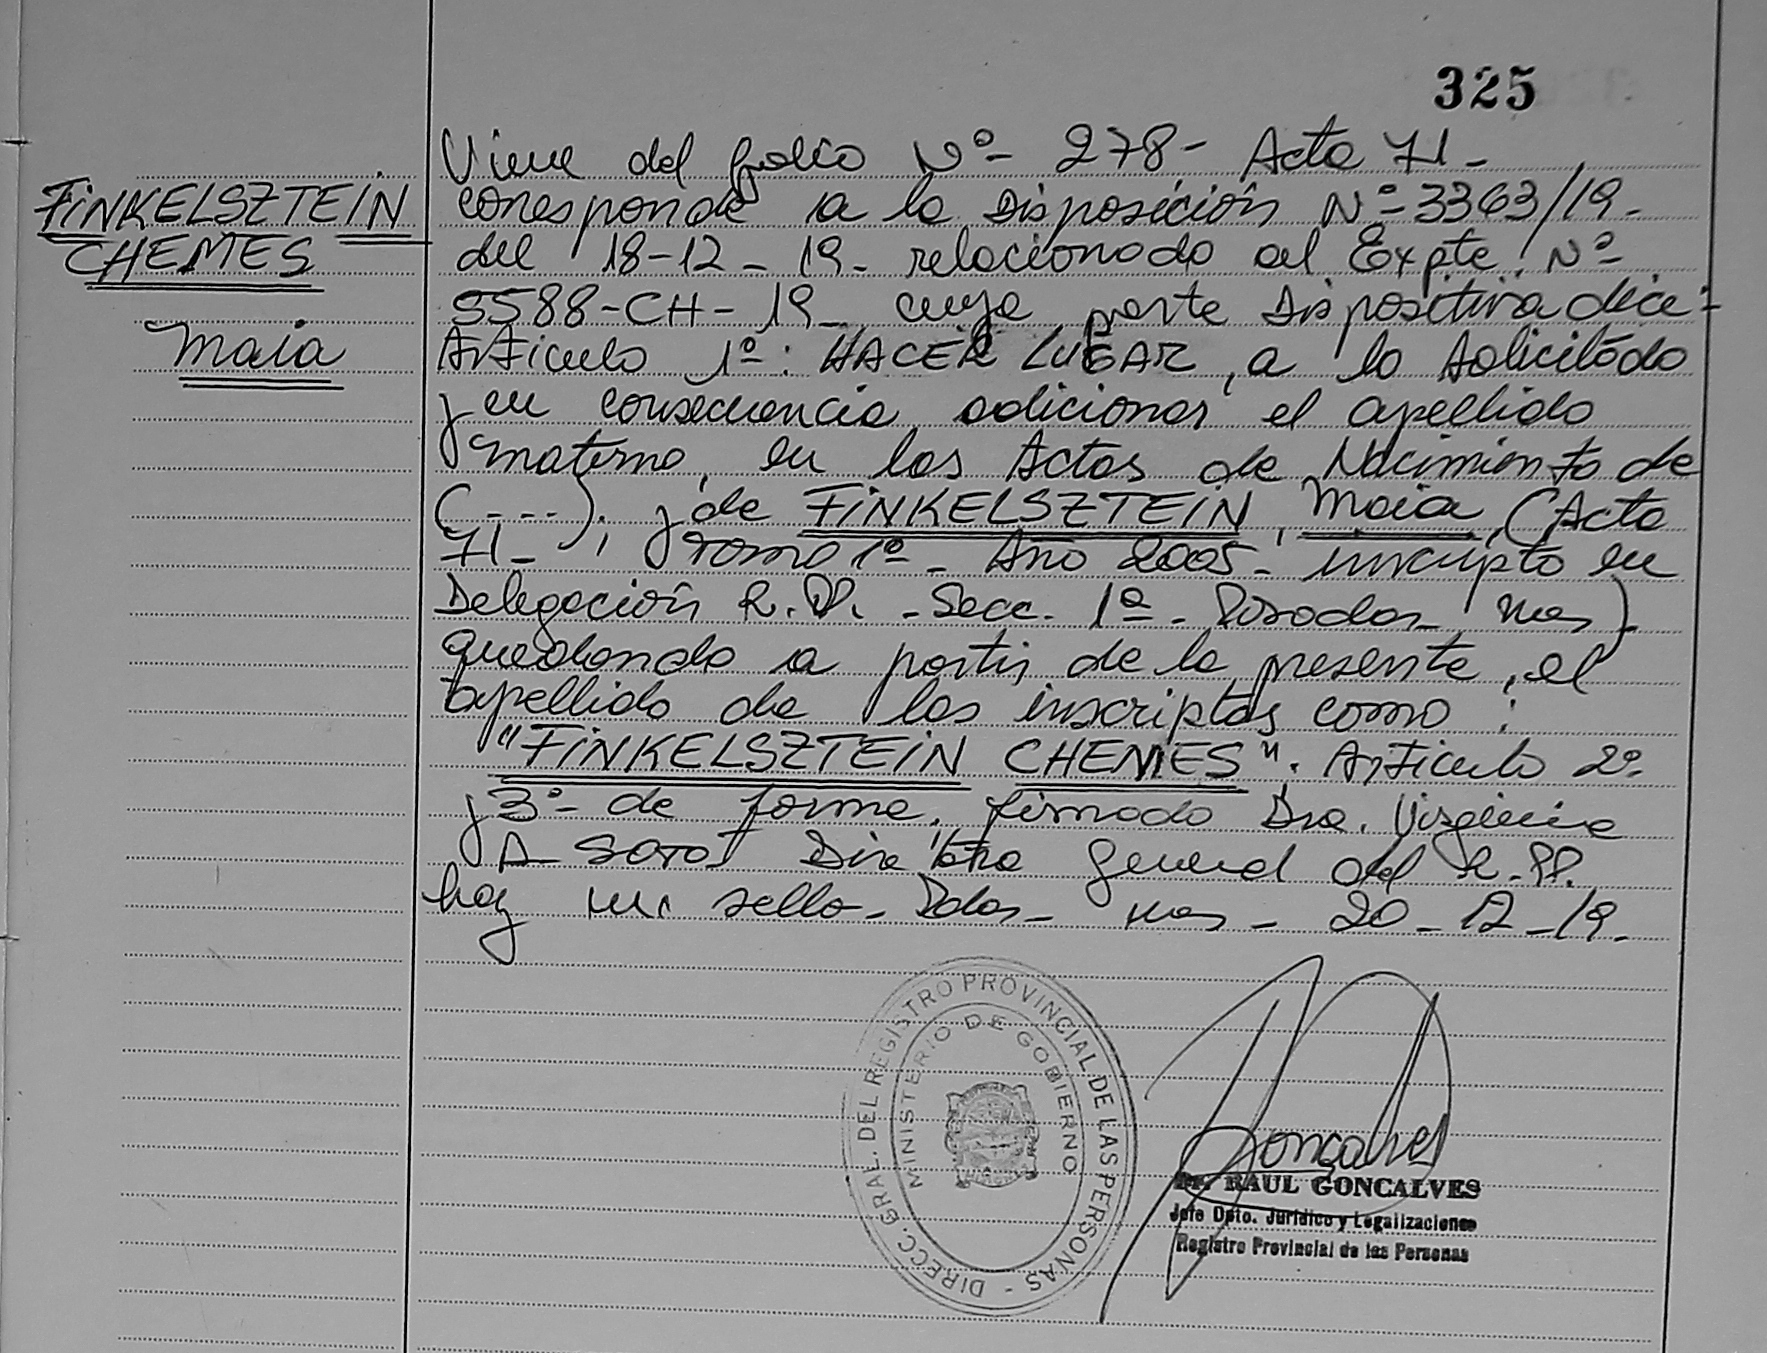 325
FINKELSZTEIN
CHEMES
Maia
Viene del folio Nº- 278- Acta 71-
corresponde a la Disposición Nº-3363/19-
del 18-12-19- relacionado al Expte. Nº-
5588-CH-19- cuya parte Dispositiva dice:
Articulo 1º: HACER LUGAR, a lo solicitado
y en consecuencia adicionar el apellido
materno, en las Actas de Nacimiento de
(----), y de FINKELSZTEIN, Maia, (Acta
71-, Tomo 1º- Año 2005- inscripta en
Delegación R.P. -Secc. 1ª- Posadas- Mnes)
quedando a partir de la presente, el
apellido de las inscriptas como:
"FINKELSZTEIN CHEMES". Articulo 2º-
y 3º- de forma. firmado Dra. Virginia
A- SOTO Directora General del R.PP.
hay un sello- Pdas- Mnes- 20-12-19-
DIRECC. GRAL. DEL REGISTRO PROVINCIAL DE LAS PERSONAS -
MINISTERIO DE GOBIERNO
Goncalves
Dr. RAUL GONCALVES
Jefe Dpto. Juridico y Legalizaciones
Registro Provincial de las Personas